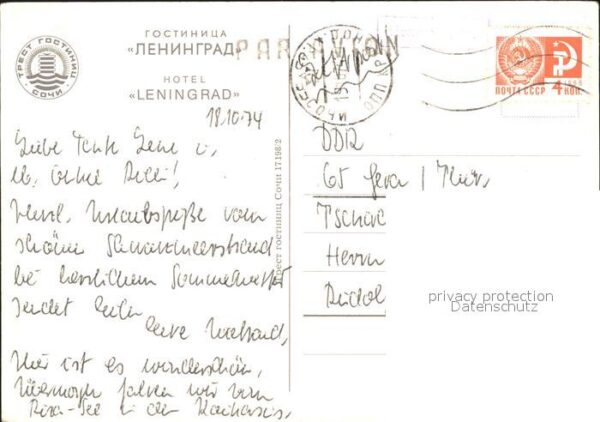 ГОСТИНИЦА
«ЛЕНИНГРАД»
PAR AVION
HOTEL
«LENINGRAD»
ТРЕСТ ГОСТИНИЦ
СОЧИ
ПОЧТА СССР 4 КОП
1966
18.10.74
Liebe
lb. Onkel Willi!
Herzl. Urlaubsgrüße vom
schönen Schwarzmeerstrand
bei herrlichem Sommerwetter
sendet
Eure
Hier ist es wunderschön,
Übermorgen fahren wir zum
Riza-See in den Kaukasus.
Трест гостиниц Сочи 17198/2
DDR
65 Gera / Thür.
Tschai
Herrn
Rudol
privacy protection
Datenschutz